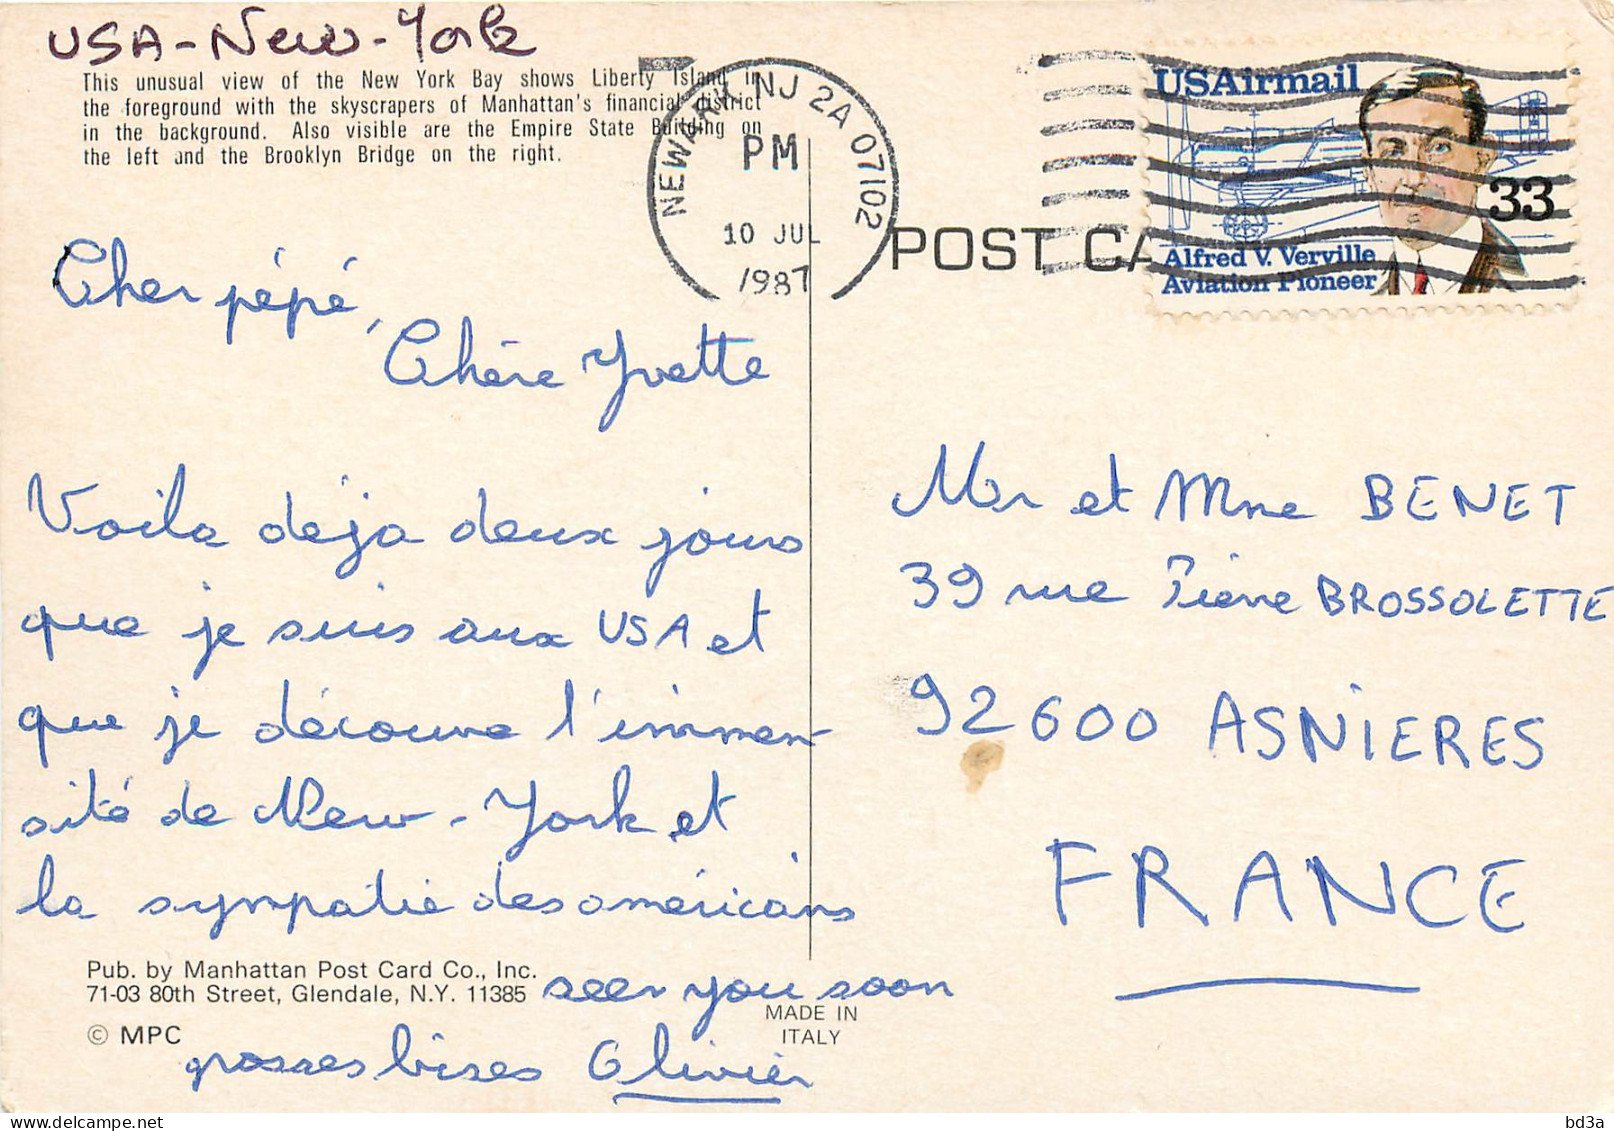 USA-New-York
This unusual view of the New York Bay shows Liberty Island in
the foreground with the skyscrapers of Manhattan's financial district
in the background. Also visible are the Empire State Building on
the left and the Brooklyn Bridge on the right.
NEWARK, NJ 2A 07102
PM
10 JUL
1987
USAirmail
33
Alfred V. Verville
Aviation Pioneer
POST CA
Cher pépé,
Chère Yvette
Voila déja deux jours
que je suis aux USA et
que je découvre l'immen
sité de New-York et
la sympatie des américans
seen you soon
grosses bises Olivier
Mr et Mme BENET
39 rue Pierre BROSSOLETTE
92600 ASNIERES
FRANCE
Pub. by Manhattan Post Card Co., Inc.
71-03 80th Street, Glendale, N.Y. 11385
© MPC
MADE IN
ITALY
bd3a